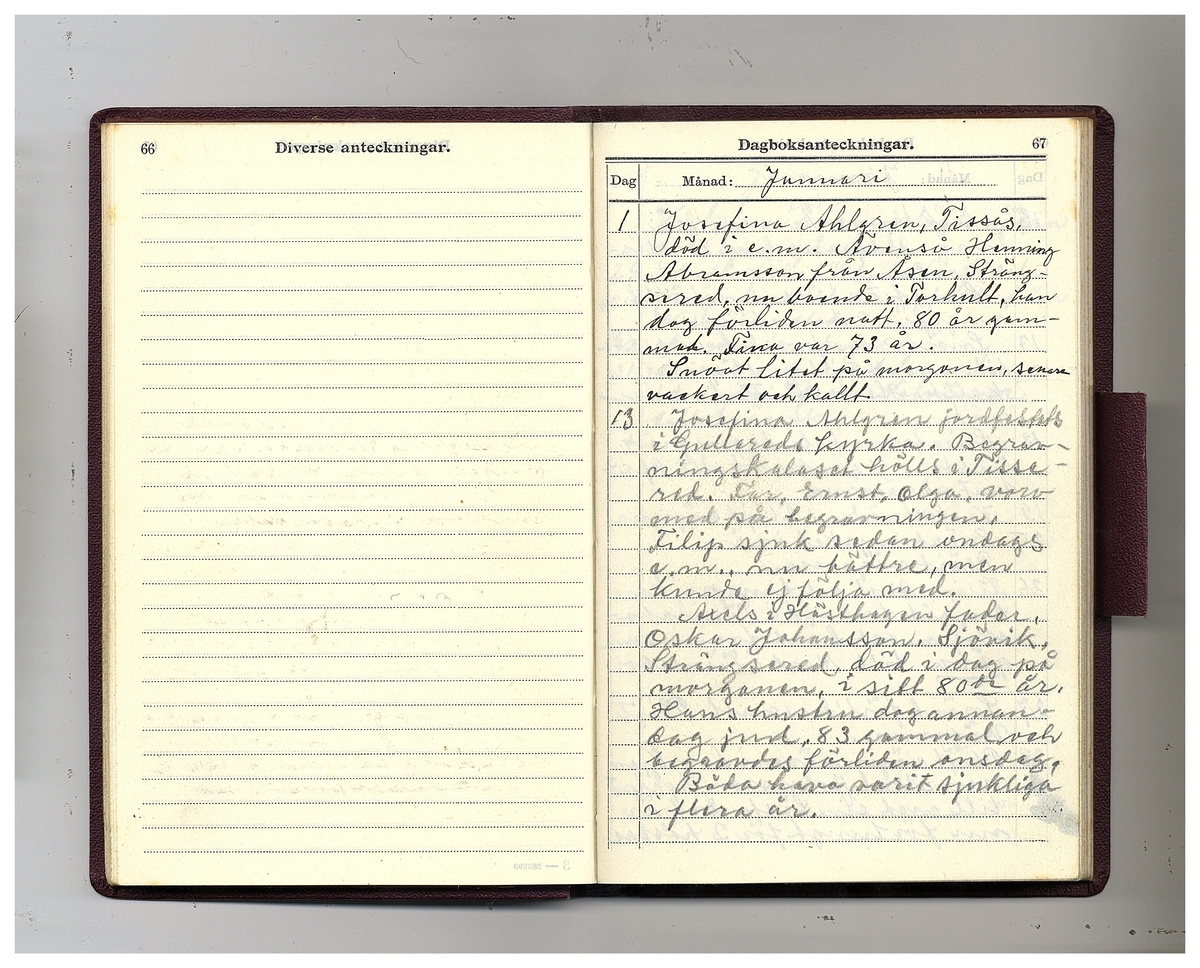 66
Diverse anteckningar.
Dagboksanteckningar.
67
Dag
Månad: Januari
1 Josefina Ahlgren, Tissås,
död i e.m. Även så Henning
Abramsson från Åsen, Sträng-
sered, nu boende i Torhult, han
dog förliden natt, 80 år gam-
mal. Fina var 73 år.
Snöat litet på morgonen, senare
vackert och kallt
13 Josefina Ahlgren jordfestets
i Gullereds kyrka. Begrav-
ningskalaset hölls i Tisse-
red. Far, Ernst, Olga, voro
med på begravningen,
Filip sjuk sedan ondags
e.m., nu bättre, men
kunde ej följa med.
Axels i Hästhagen fader,
Oskar Johansson, Sjövik,
Strängsered, död i dag på
morgonen, i sitt 80de år.
Hans hustru dog annan-
dag jul, 83 gammal och
begravdes förliden onsdag,
Båda hava varit sjukliga
i flera år.